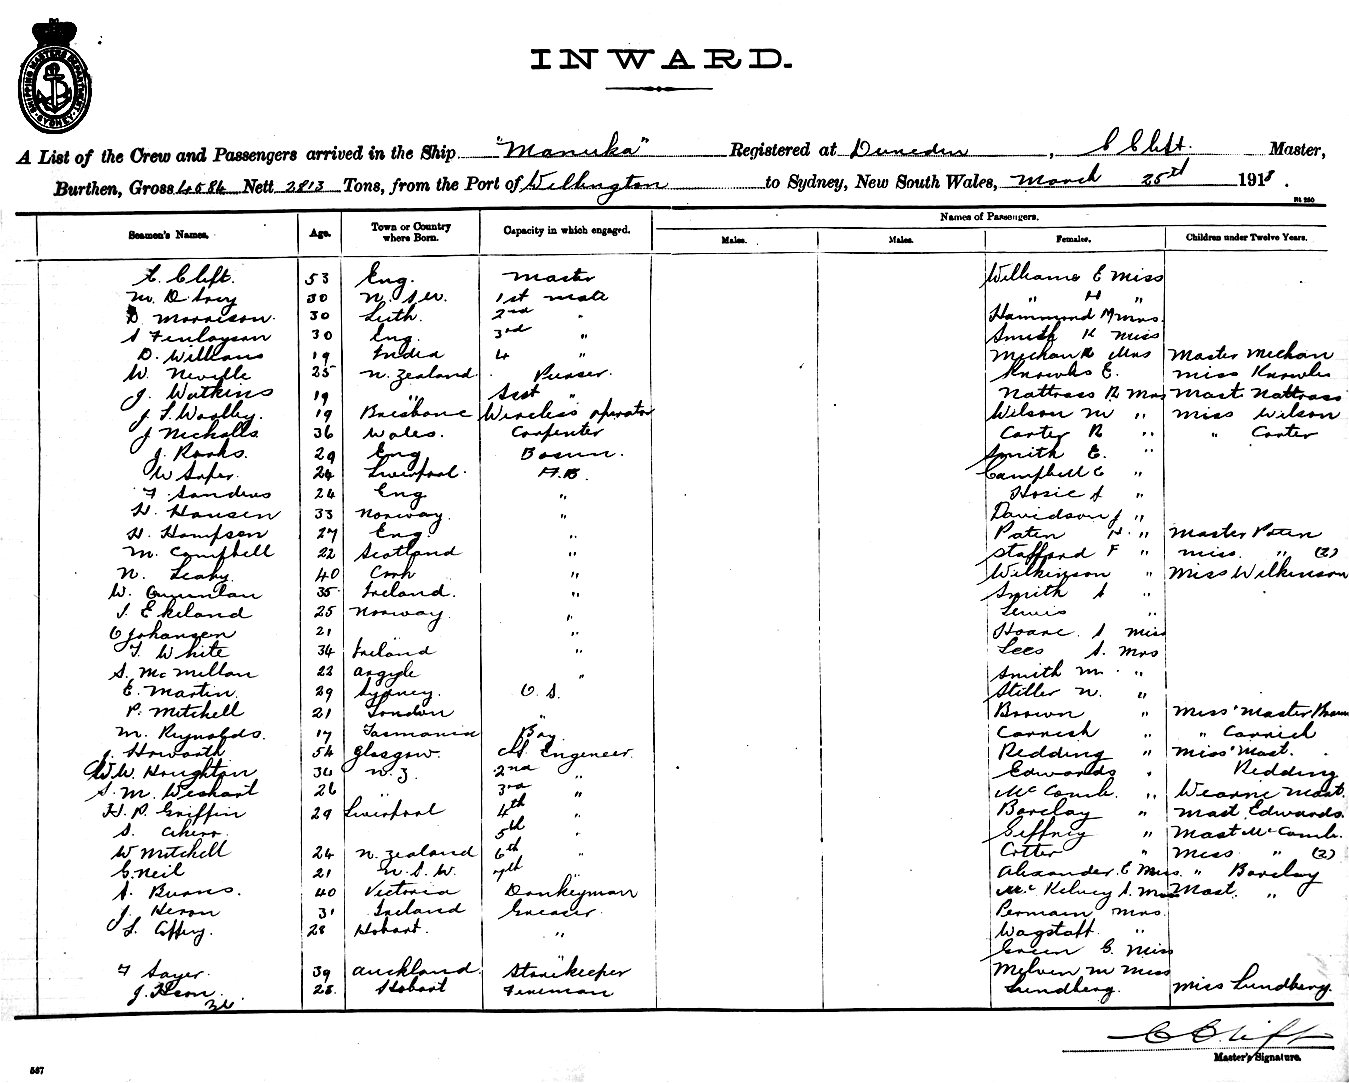 SHIPPING MASTER'S DEPARTMENT SYDNEY
INWARD.
A List of the Crew and Passengers arrived in the Ship "Manuka" Registered at Dunedin, C Clift. Master,
Burthen, Gross 4584 Nett 2813 Tons, from the Port of Wellington to Sydney, New South Wales, March 25th 1918.
Names of Passengers.
Seamen's Names. Age. Town or Country where Born. Capacity in which engaged. Males. Males. Females. Children under Twelve Years.
C. Clift. 53 Eng. Master Williams E Miss
30 1st mate " H "
D Morrison. 30 Leith. 2nd " Hammond M Mrs.
A Finlayson 30 Eng. 3rd " Smith K Miss
D. Williams 19 India 4 " Mechan R Mrs Master Mechan
W. Neville 25 N. Zealand. Purser. Knowles E. Miss Knowles
J. Watkins 19 " Asst " Nattrass R Mrs Mast Nattrass
J. S. Woolley. 19 Brisbane Wireless operator Wilson M " Miss Wilson
J Nicholls. 36 Wales. Carpenter Carter R " " Carter
J. Rooks. 29 Eng Bosun. Smith E. "
W Soper. 24 Liverpool. A.B. Campbell C "
F Sanders 24 Eng " Hosie A "
H. Hansen 33 Norway. " Davidson J "
H. Hompson 27 Eng. " Paten H. " Master Paten
M. Campbell 22 Scotland " Stafford F " Miss " (2)
N. Leahy. 40 Cork " Wilkinson " Miss Wilkinson
W. Quinlan 35 Ireland. " Smith A "
J. Ekeland 25 Norway. " Lewis "
C Johansen 21 " " Hoare. A Miss
T. White 34 Ireland " Lees A. Mrs
A. McMillan 22 Argyle " Smith M. "
E. Martin. 29 Sydney. O.S. Stiller N. "
P. Mitchell 21 London " Brown " Miss "Master Brown
M. Reynolds. 17 Tasmania Boy. Cornish " " Cornish
J. Howorth 54 Glasgow. Ch. Engineer. Redding " Miss "Mast.
W.W. Houghton 36 N.Z. 2nd " Edwards " Redding
A. M. Wishart 26 " 3rd " McComb. " Wearne Mast.
H. P. Griffin 29 Liverpool 4th " Barclay " Mast Edwards.
S. 5th " Giffney " Mast McComb.
W Mitchell 24 N. Zealand 6th " Cotter " Miss " (2)
C. Neil 21 N.S.W. 7th Alexander. E Miss. " Barclay
A. Burns. 40 Victoria Donkeyman McKelvey A. Mrs Mast. "
J. Heron 31 Ireland Greaser. Permain Mrs.
28 Hobart. " Wagstaff. "
Green G. Miss
F Sayer. 39 Auckland. Storekeeper Melvin M Miss
28. Hobart Fireman Lundberg. Miss Lundberg.
36
C Clift
Master's Signature.
587